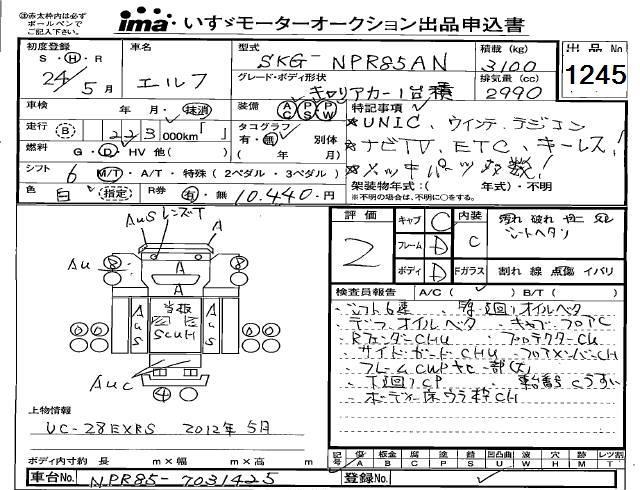 ㊟赤太枠内は必ず
ボールペンで
ご記入下さい。
ima いすゞモーターオークション出品申込書
初度登録 車名 型式 積載 (kg) 出品No
S・H・R エルフ SKG- NPR85AN 3100 1245
24年 5月 グレード・ボディ形状 排気量 (cc)
キャリアカー1台積 2990
車検 年・月・抹消 装備 AC PS PW 特記事項
走行 B 223000km「 」 タコグラフ 有・無 別体 ( 年 月)
★UNIC、ウインチ、ラジコン
燃料 G・D・HV 他( )
★ナビTV、ETC、キーレス!
シフト 6 M/T・A/T・特殊(2ペダル・3ペダル)
★メッキパーツ多数!
色 白 (指定) R券 有・無 10,440円
架装物年式:( 年式)・不明
※不明の場合は、不明に○をする。
評価 2 キャブ C 内装 C
フレーム D
ボディ D Fガラス 割れ 線 点傷 イバリ
シートヘタリ
検査員報告 A/C( ) B/T( )
・シフト6速
オイルベタ
・デフオイルベタ ・キャブフロアC
・RフェンダーCHU ・プロテクターCU
・サイドガードCHU ・フロアメンバーCH
・下廻りCP ・車台番号Cうすい
・ボーディー床ウラ枠CH
AuS レンズT A
Au 8 A 8
A
AuS 当板 SCUH AuS
AuC 4
上物情報
UC-28EXRS 2012年5月
ボディ内寸約 長 m×幅 m×高 m
記号 傷 A 板金 B 腐 C 補 P 塗 S 錆 凹凸曲 U 波 W 穴 H 外 M レンズ割 T
車台No. NPR85-7031425 登録No.